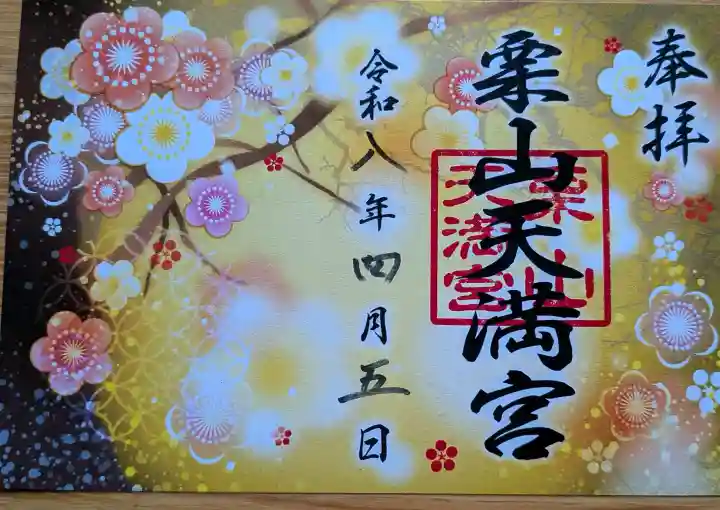 奉拝
栗山天満宮
栗山
天満宮
令和八年四月五日